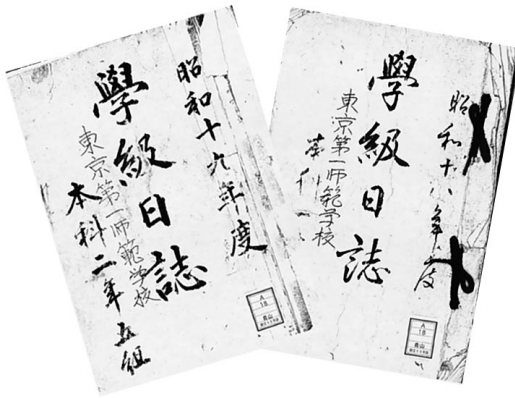 昭和十九年度
學級日誌
東京第一師範学校
本科二年五組
A
18
青山
昭和十八年度
學級日誌
東京第一師範学校
A
18
青山